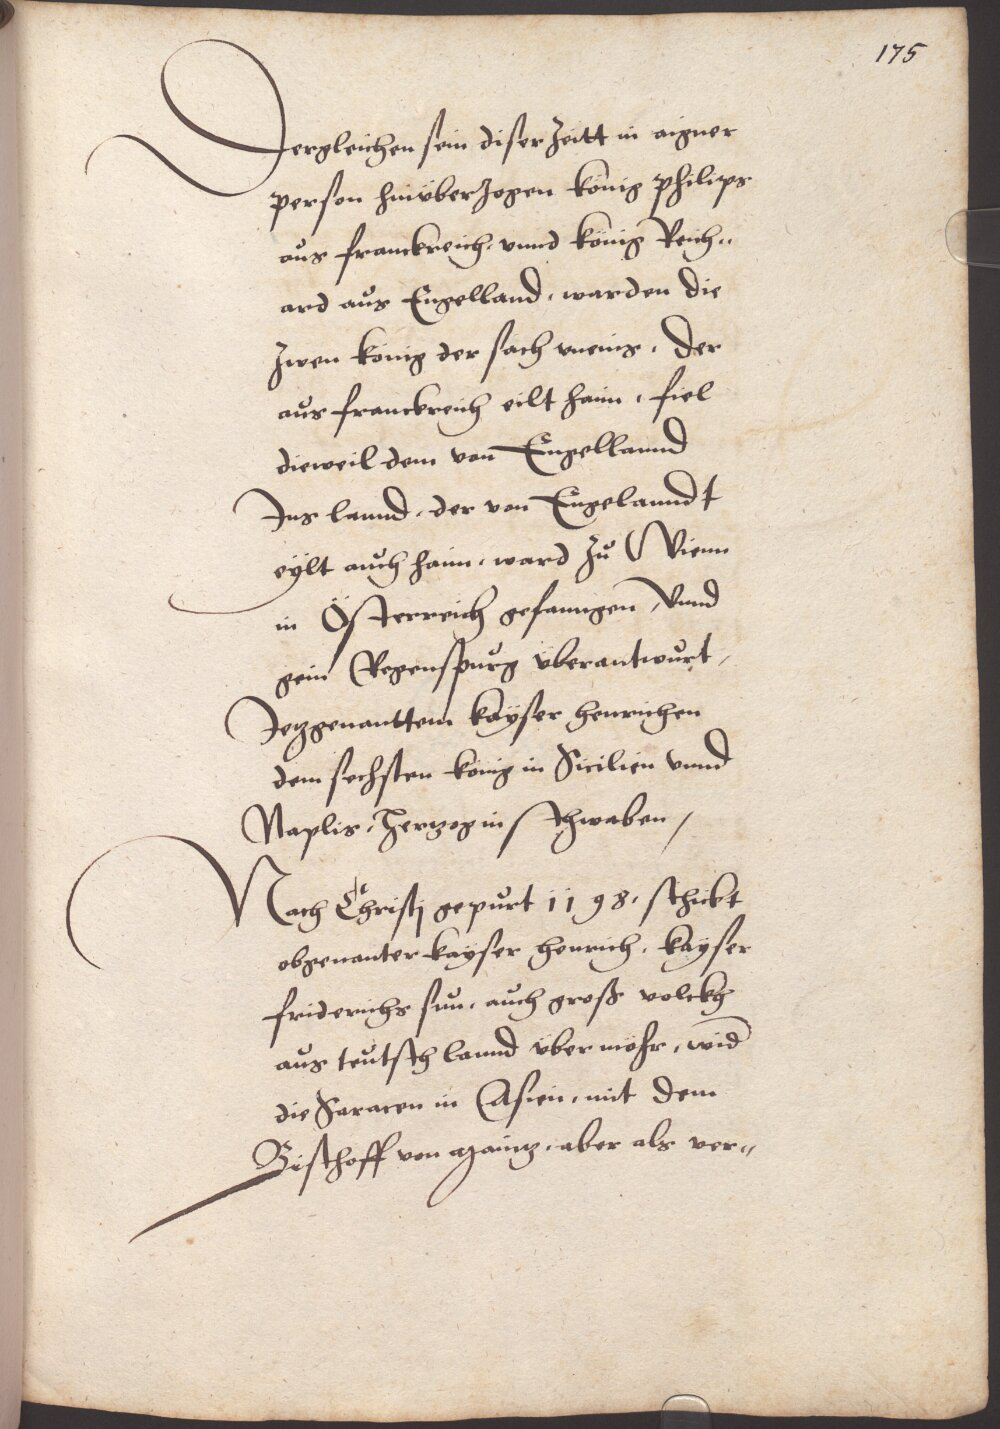 175
Dergleichen sein diser Zeitt in aigner
person hinüber Zogen König philips
aus franckreich, vnnd König Reich„
ard aus Engelland, warden die
Zwen König der sach vneins, Der
aus franckreich eilt haim, fiel
dieweil dem von Engellannd
Ins lannd, der von Engelanndt
eÿlt auch haim, ward Zu Wienn
in Österreich gefanngen, Vnnd
gein Regenspurg vberantwurt,
Jetzgenanttem Kaÿser Henrichen
dem sechsten König in Sicilien vnnd
Naplis, Hertzog in Schwaben,
Nach Christj gepurt 1198, schickt
obgenanter Kaÿser Henrich, Kaÿser
friderichs sun, auch groß volckh
aus teutschlannd vber möhr, wid
die Saracen in Asien, mit dem
Bischoff von Maintz, aber als ver„